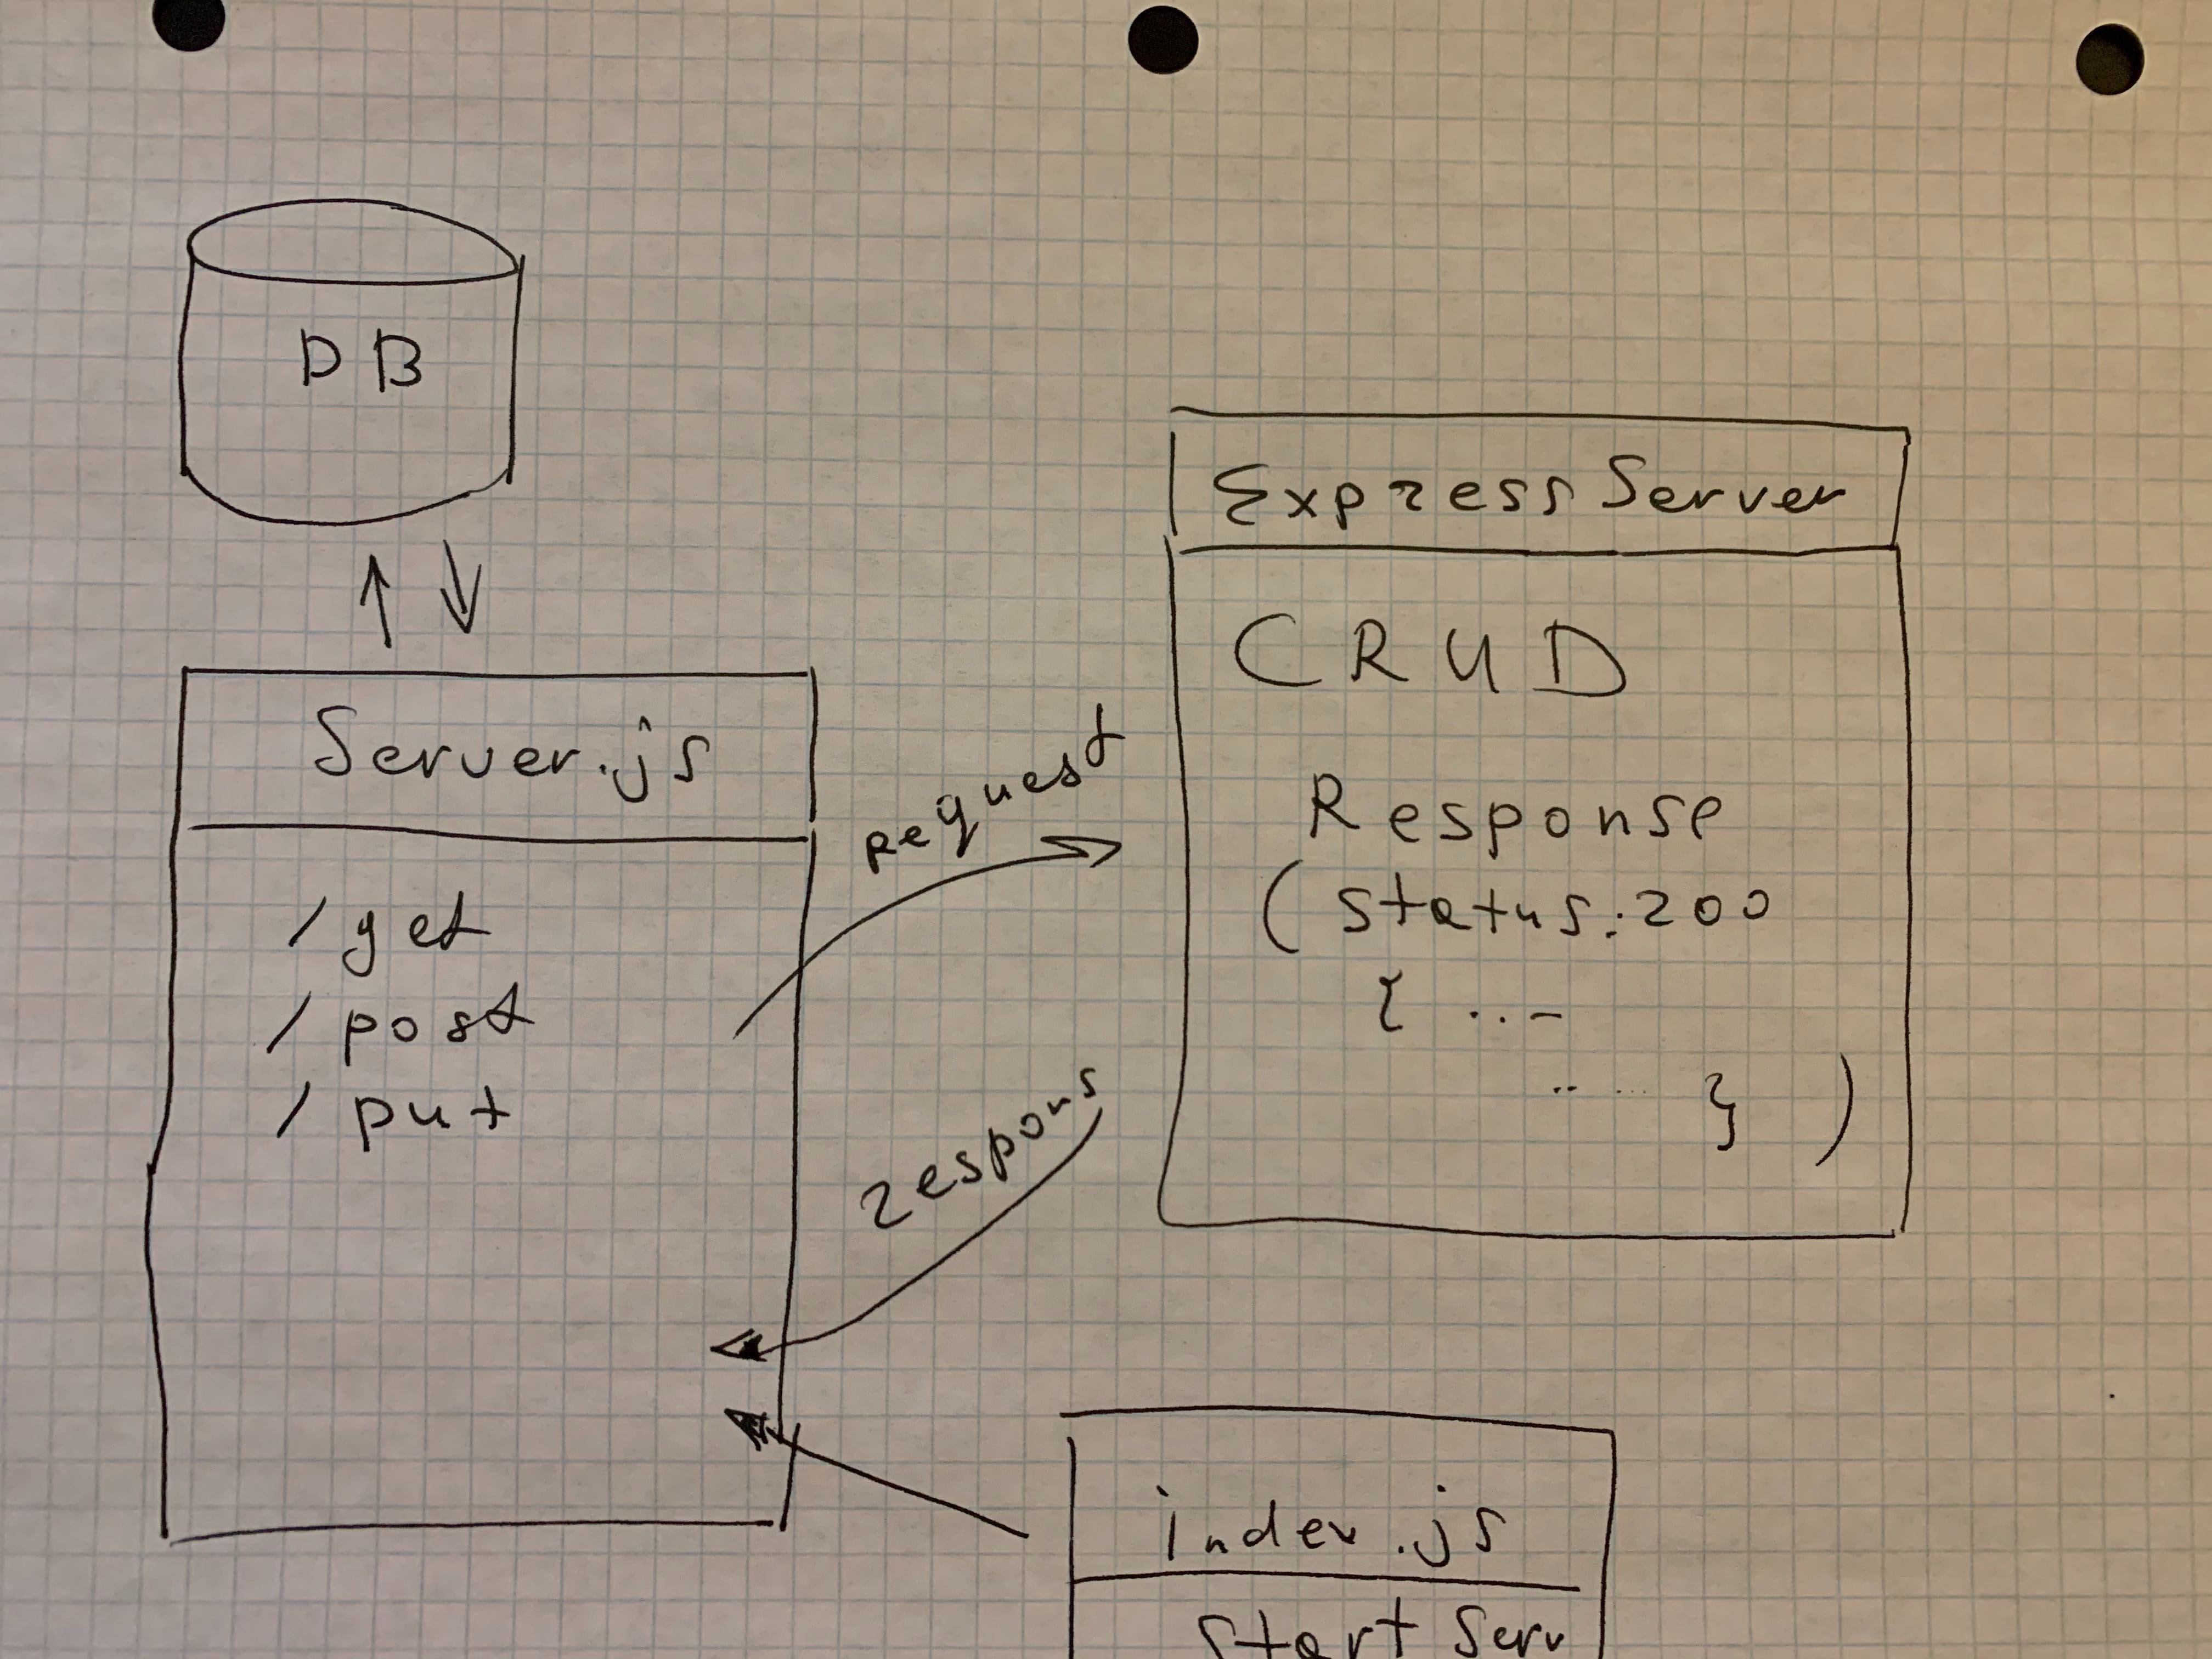 DB
Server.js
/get
/post
/put
request
respons
Express Server
CRUD
Response
(status:200
{ ...
.. ... } )
index.js
Start Serv